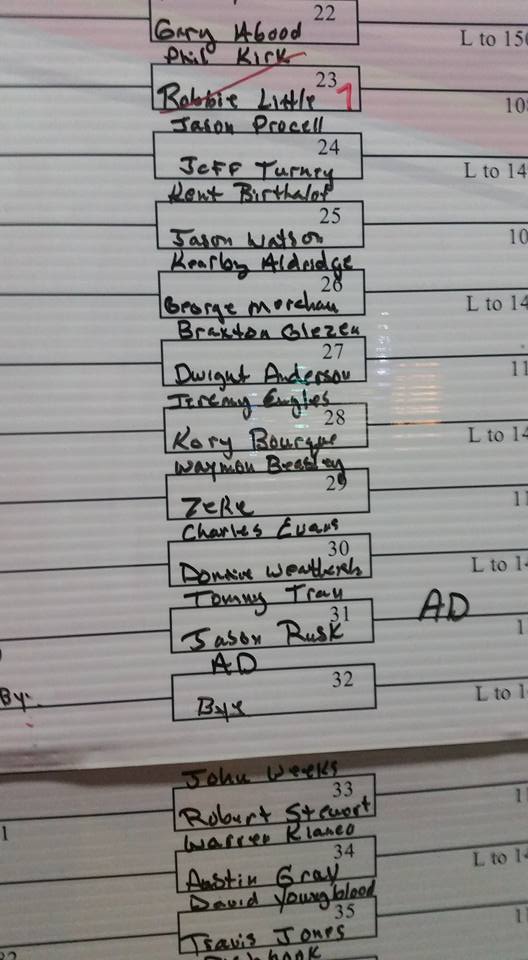 22
Gary Abood
L to 150
Phil Kirk
23
Robbie Little
1
10
Jason Procell
24
Jeff Turney
L to 14
Kent Birthalot
25
Jason Watson
10
Kearby Aldridge
26
George Morchau
L to 14
Braxton Glezen
27
Dwight Anderson
11
Jeremy Engles
28
Kory Bourque
L to 14
Waymon Beasley
29
Zeke
11
Charles Evans
30
Donnie
L to 14
Tommy
31
Jason Rusk
AD
1
AD
32
Bye
L to 1
By
John Weeks
33
Robert Stewart
1
1
Warren Kianeo
34
Austin Gray
L to 14
David Youngblood
35
Travis Jones